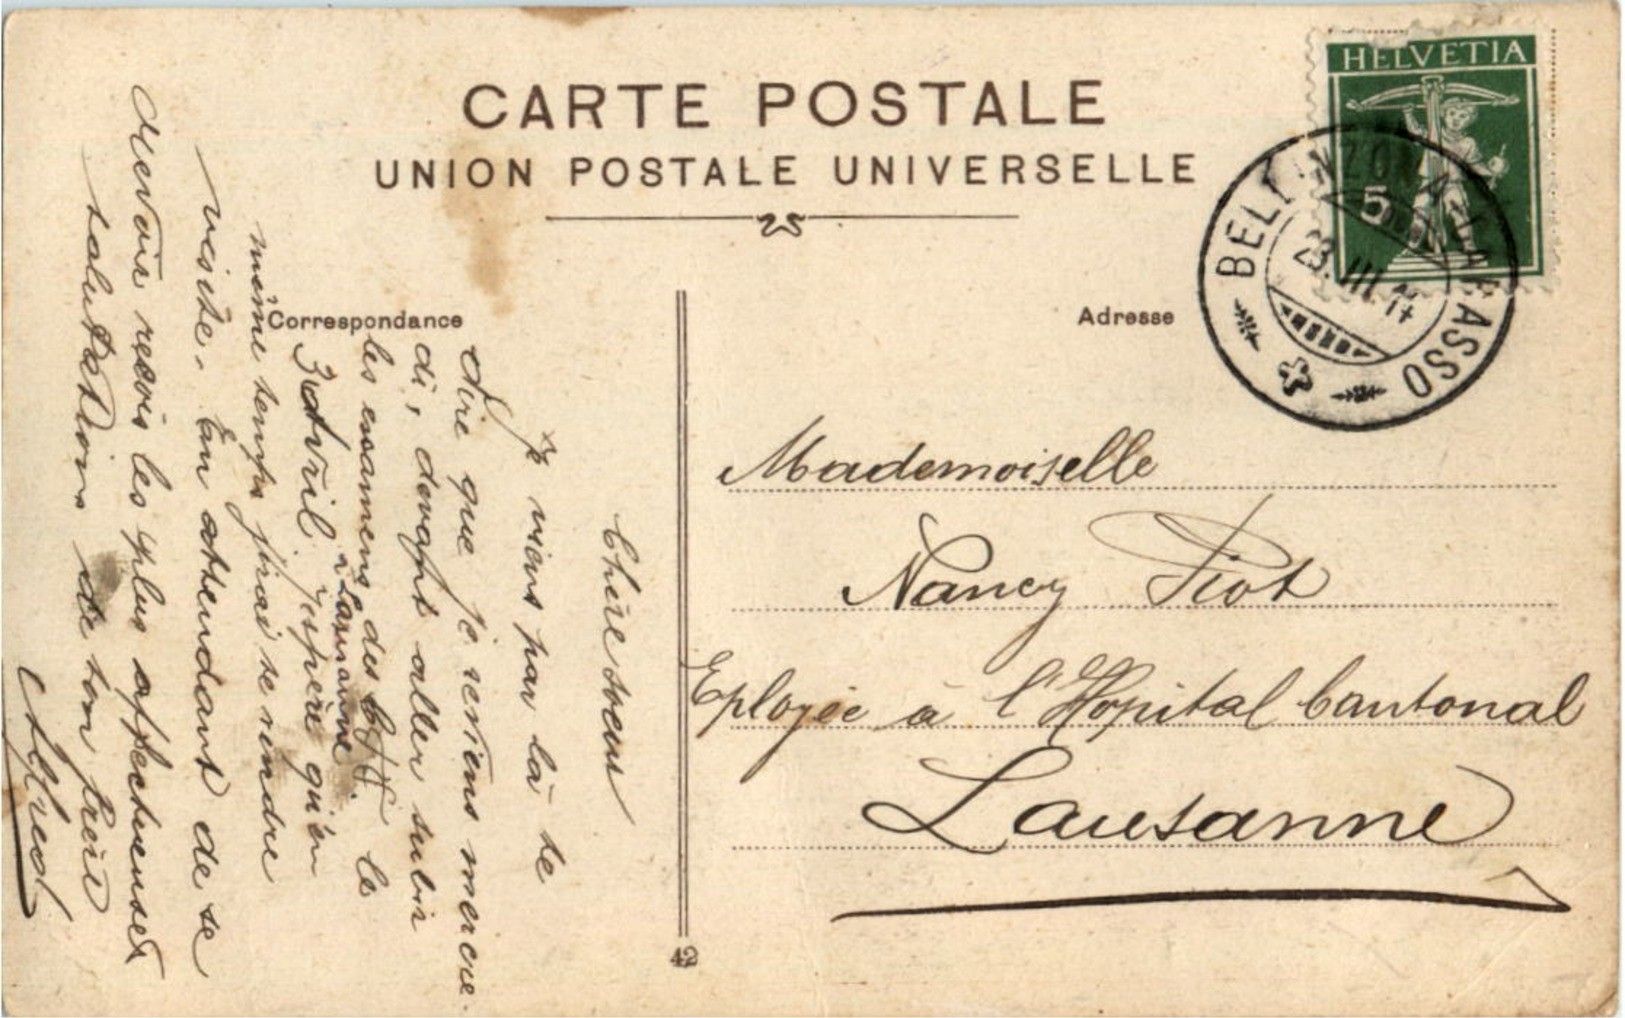 CARTE POSTALE
UNION POSTALE UNIVERSELLE
Correspondance
Adresse
HELVETIA
5
BELLINZONA-CHIASSO
23. III. 14
Chère soeur
Je viens par là te
dire que je reviens mercre-
di, devant aller subir
les examens des C.F.F. le
3 avril à Lausanne
J'espère qu'en
même temps j'irai te rendre
visite. En attendant de se
revoir reçois les plus affectueuses
salutations de ton frère
Alfred
Mademoiselle
Nancy Piot
Eployée à l'Hopital Cantonal
Lausanne
42